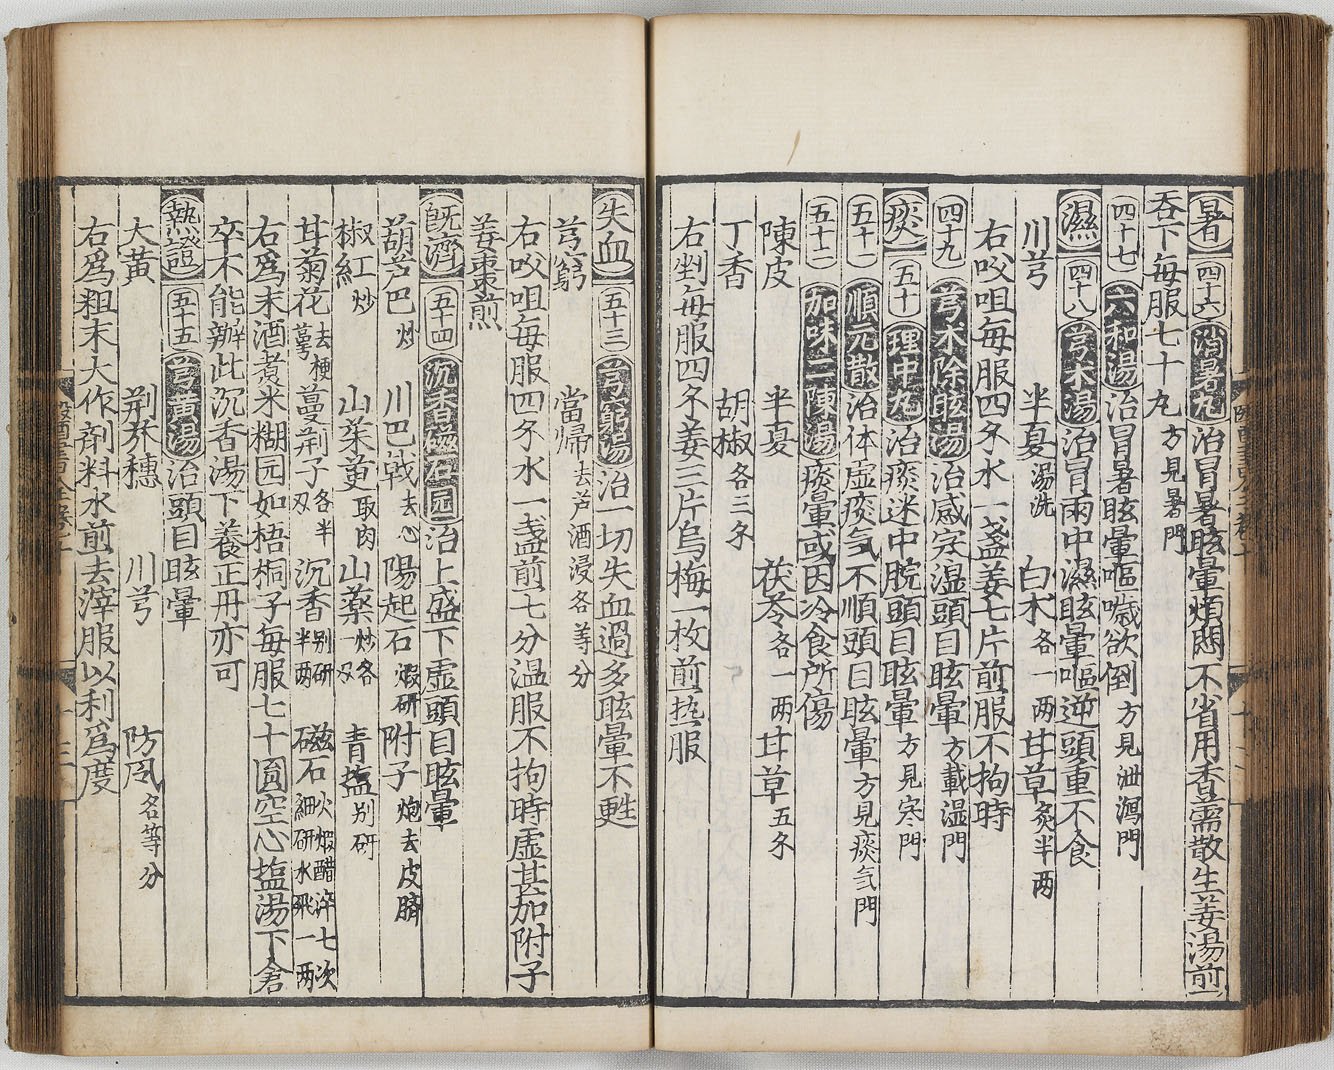 暑 四十六 消暑丸 治冒暑眩暈煩悶不省用香需散生姜湯煎
吞下每服七十丸方見暑門
四十七 六和湯 治冒暑眩暈嘔噦欲倒方見泄瀉門
濕 四十八 芎朮湯 治冒雨中濕眩暈嘔逆頭重不食
川芎 半夏湯洗 白朮各一两 甘草炙半两
右㕮咀每服四钅水一盞姜七片煎服不拘時
四十九 芎朮除眩湯 治感寒湿頭目眩暈方載湿門
痰 五十 理中丸 治痰迷中脘頭目眩暈方見寒門
五十一 順元散 治体虚痰气不順頭目眩暈方見痰气門
五十二 加味二陳湯 痰暈或因冷食所傷
陳皮 半夏 茯苓各一两 甘草五钅
丁香 胡椒各三钅
右剉每服四钅姜三片烏梅一枚煎热服
失血 五十三 芎藭湯 治一切失血過多眩暈不甦
芎藭 當歸去芦酒浸各等分
右㕮咀每服四钅水一盞煎七分温服不拘時虚甚加附子
姜棗煎
既濟 五十四 沉香磁石园 治上盛下虚頭目眩暈
葫芦巴炒 川巴戟去心 陽起石煅研 附子炮去皮臍
椒紅炒 山茱萸取肉 山藥炒各一双 青塩别研
甘菊花去梗萼 蔓荆子各半双 沉香别研半两 磁石火煅醋淬七次細研水飛一两
右爲末酒煮米糊园如梧桐子每服七十圓空心塩湯下倉
卒不能辦此沉香湯下養正丹亦可
熱證 五十五 芎黄湯 治頭目眩暈
大黄 荆芥穗 川芎 防风各等分
右爲粗末大作劑料水煎去滓服以利爲度